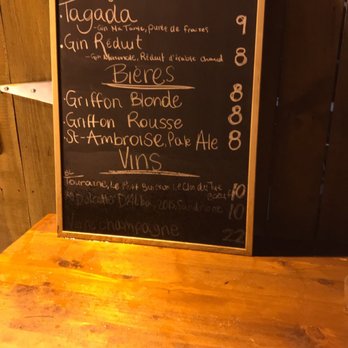 Tagada 9
-Gin Ma Tante, purée de fraises
.Gin Réduit 8
-Gin, Réduit d'érable chaud
Bières
.Griffon Blonde 8
.Griffon Rousse 8
St-Ambroise, Pale Ale 8
Vins
Touraine, Le 10
Dolcetto D'Alba, 2013 10
champagne 22